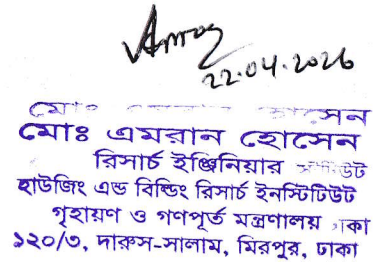 22.04.2026
মোঃ এমরান হোসেন
রিসার্চ ইঞ্জিনিয়ার
হাউজিং এন্ড বিল্ডিং রিসার্চ ইনস্টিটিউট
গৃহায়ণ ও গণপূর্ত মন্ত্রণালয়
১২০/৩, দারুস-সালাম, মিরপুর, ঢাকা